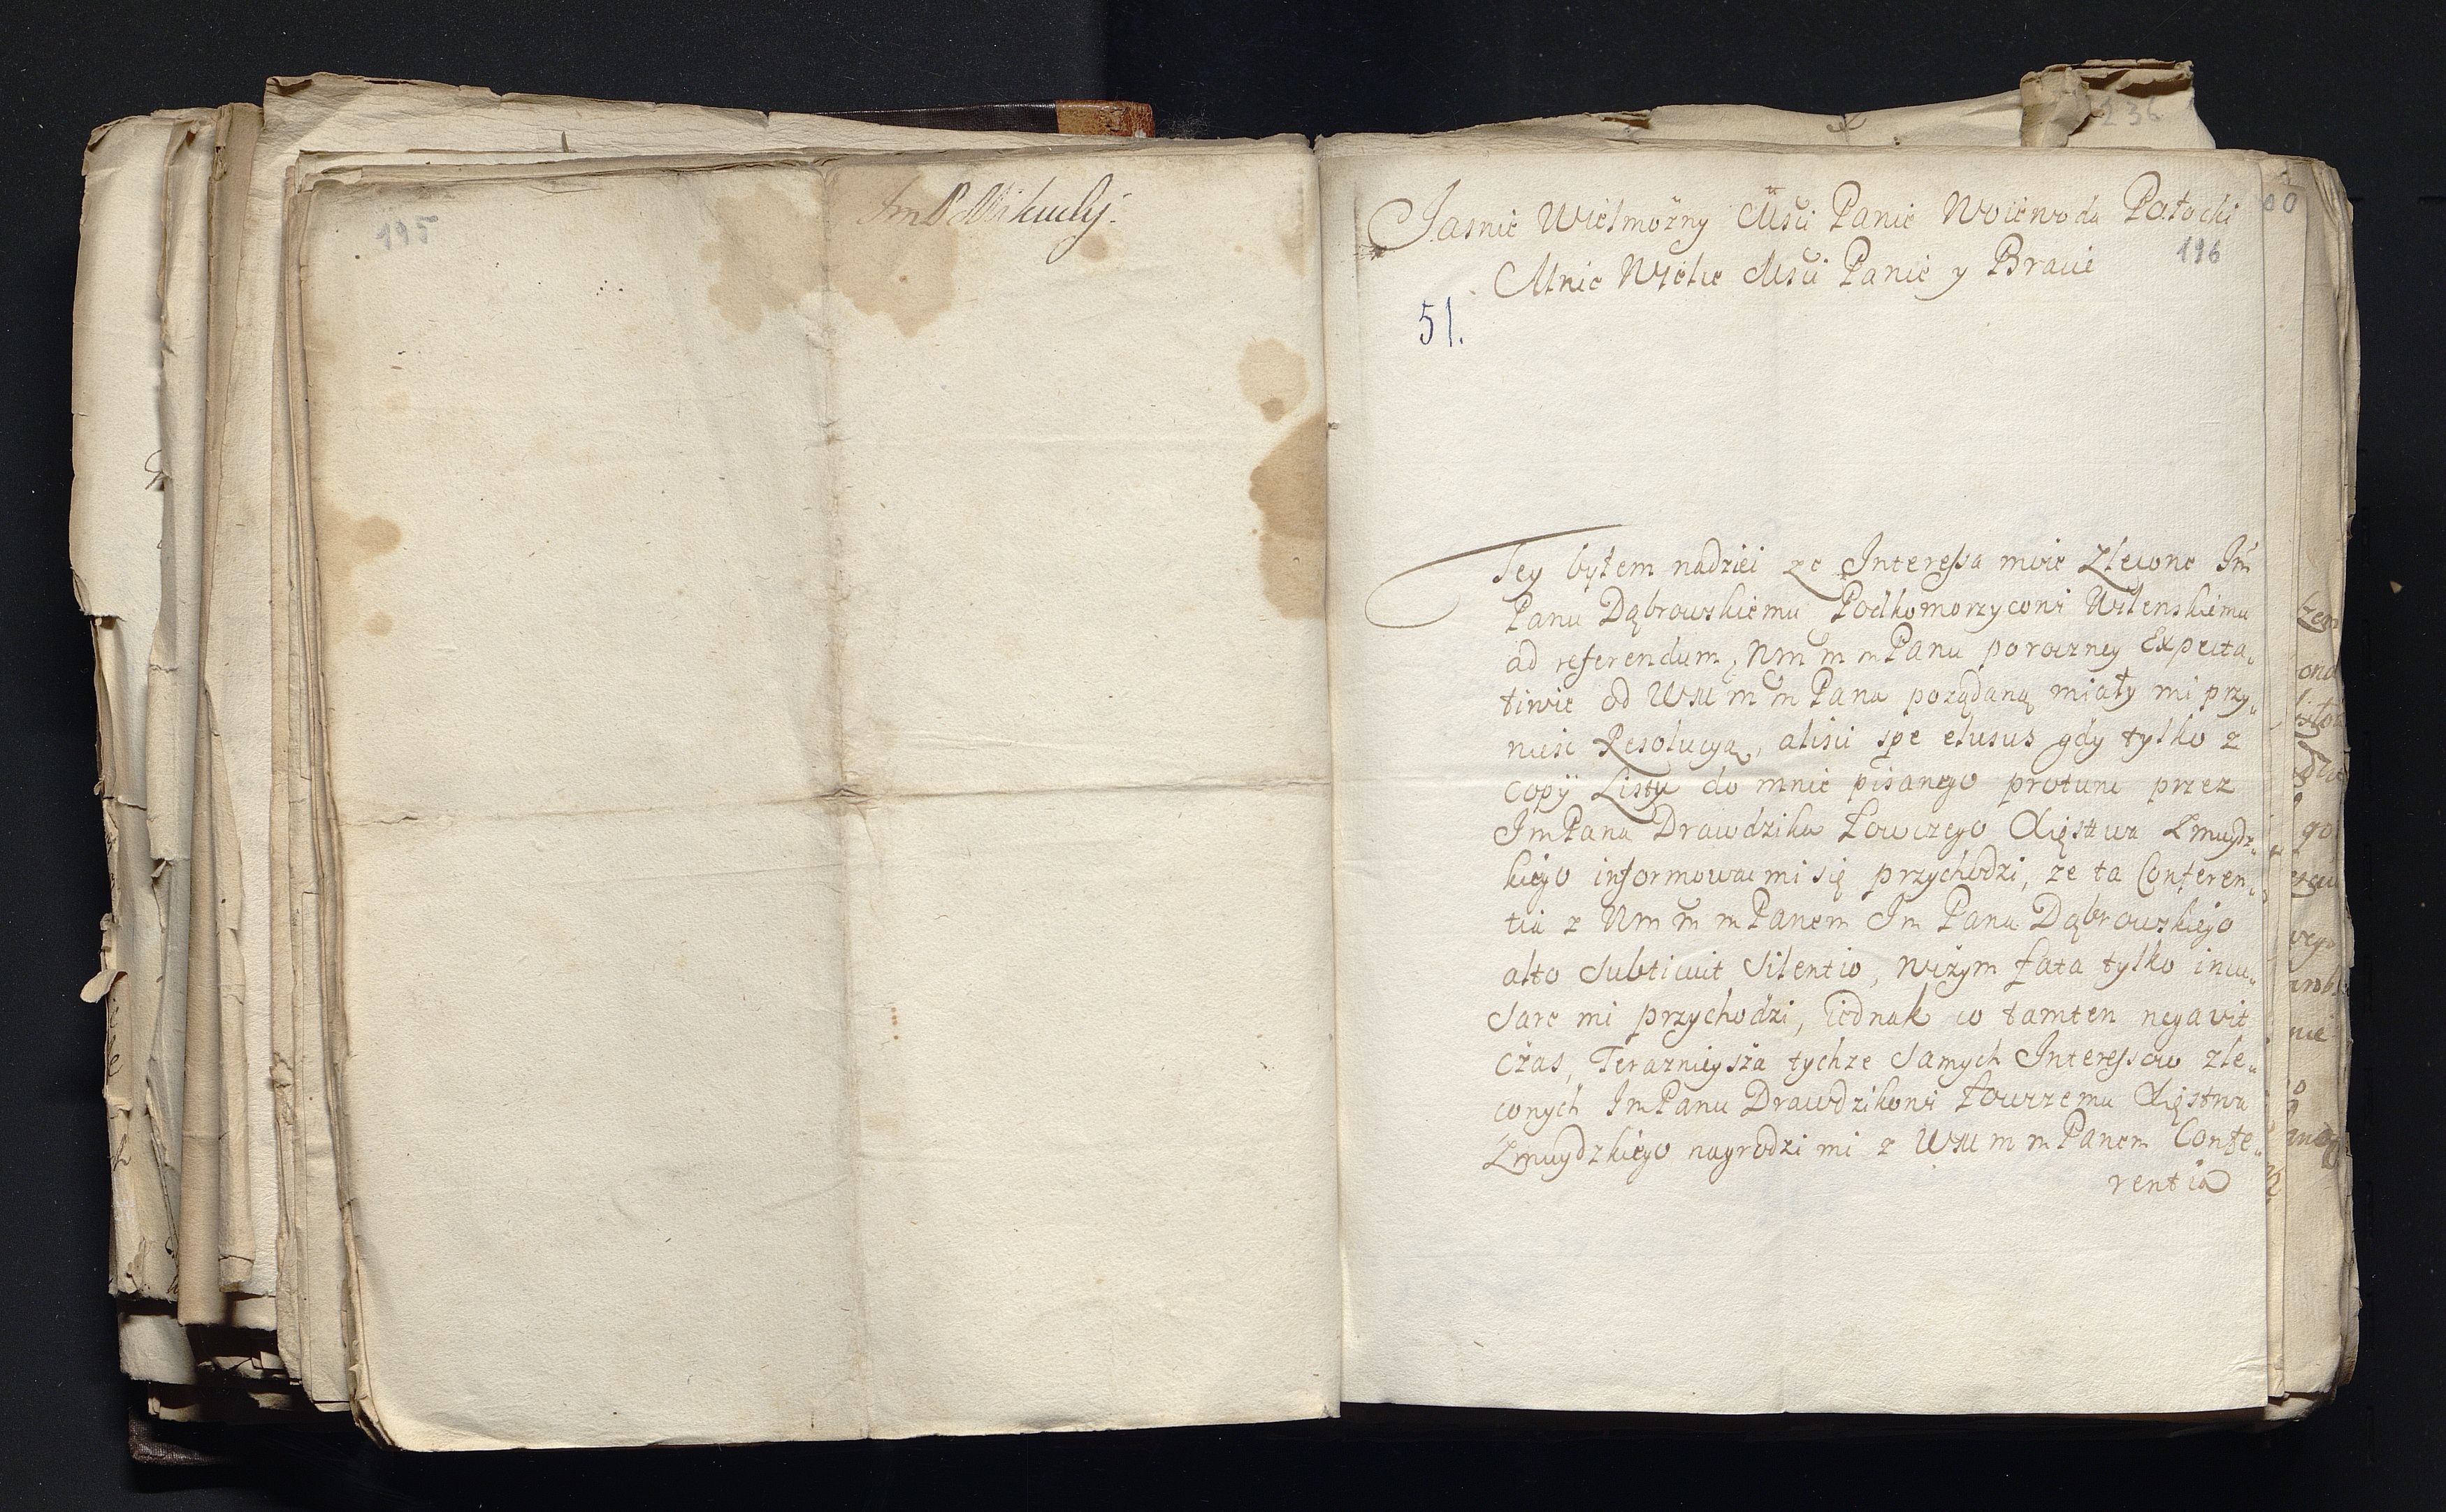 195
Im P Mikuly.
Jasnie Wielmożny Mśći Panie Woiewoda Połocki
196
Mnie Wielce Mśći Panie y Bracie
51.
Tey byłem nadziei ze Interessa moie zlecone Im
Panu Dąbrowskiemu Podkomorzycowi Wilenskiemu
ad referendum, Wm m m Panu poroczney Expecta„
tiwie od WM m m Pana pożądaną miały mi przy„
nieść Resolucyą, aliści spe elusus gdy tylko z
copÿ Listu do mnie pisanego protunc przez
ImPana Drawdzika Łowczego Xięstwa Zmuydz„
kiego informować mi się przychodzi, ze ta Conferen„
tia z Wm m m Panem Im Pana Dąbrowskiego
alto subticuit silentio, wczym fata tylko incu„
sare mi przychodzi, iednak co tamten negavit
czas, Teraznieysza tychze samych Interessow zle„
conych ImPanu Drawdzikowi Łowczemu Xięstwa
Zmuydzkiego nagrodzi mi z WM m m Panem Confe„
rentia